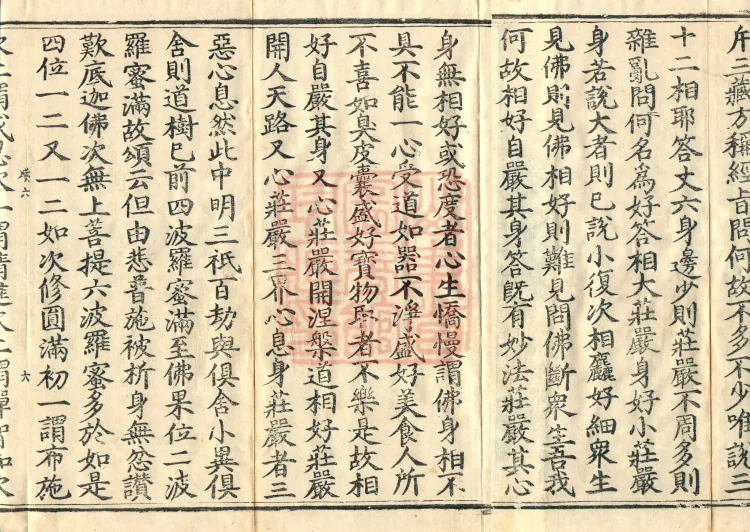 斥三藏方稱經旨問何故不多不少唯說三
十二相耶答丈六身邊少則莊嚴不周多則
雜亂問何名爲好答相大莊嚴身好小莊嚴
身若說大者則已說小復次相麤好細衆生
見佛則見佛相好則難見問佛斷衆生吾我
何故相好自嚴其身答旣有妙法莊嚴其心
身無相好或恐度者心生憍慢謂佛身相不
具不能一心受道如器不淨盛好美食人所
不喜如臭皮囊盛好寶物取者不樂是故相
好自嚴其身又心莊嚴開涅槃道相好莊嚴
開人天路又心莊嚴三界心息身莊嚴者三
惡心息然此中明三祇百劫與俱舍小異俱
舍則道樹已前四波羅蜜滿至佛果位二波
羅蜜滿故頌云但由悲普施被析身無忿讚
歎底迦佛次無上菩提六波羅蜜多於如是
四位一二又一二如次修圓滿初一謂布施
六
六
次二謂戒忍次一謂精進次二謂禪智如次